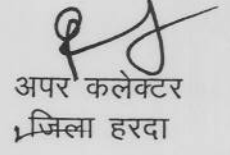 अपर कलेक्टर
जिला हरदा